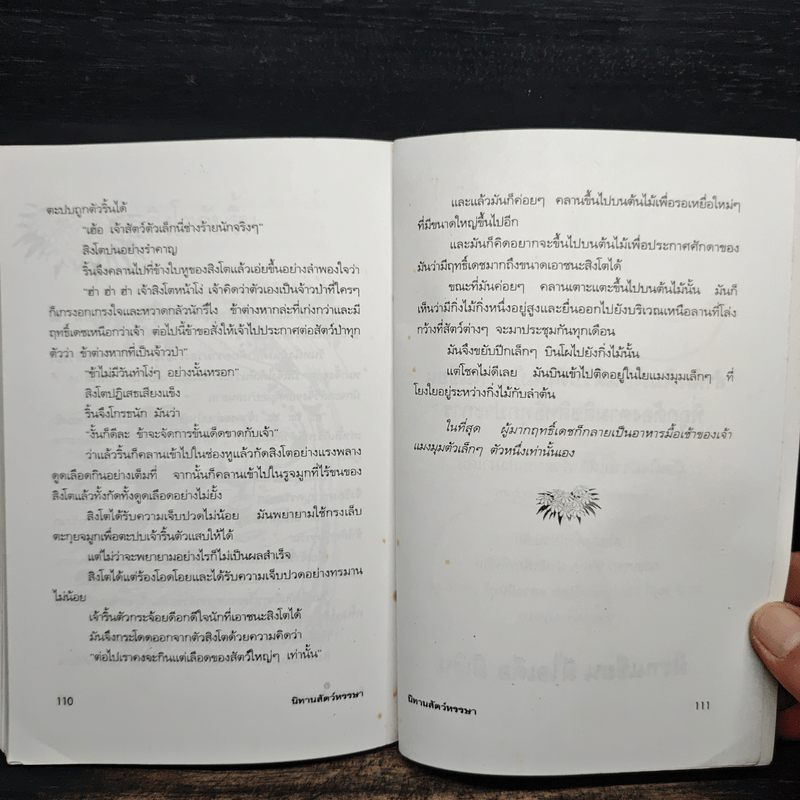 ตะปบถูกตัวริ้นได้
"เฮ้อ เจ้าสัตว์ตัวเล็กนี่ช่างร้ายนักจริงๆ"
สิงโตบ่นอย่างรำคาญ
ริ้นจึงคลานไปที่ข้างใบหูของสิงโตแล้วเอ่ยขึ้นอย่างลำพองใจว่า
"ฮ่า ฮ่า ฮ่า เจ้าสิงโตหน้าโง่ เจ้าคิดว่าตัวเองเป็นจ้าวป่าที่ใครๆ
ก็เกรงอกเกรงใจและหวาดกลัวนักรึไง ข้าต่างหากล่ะที่เก่งกว่าและมี
ฤทธิ์เดชเหนือกว่าเจ้า ต่อไปนี้ข้าขอสั่งให้เจ้าไปประกาศต่อสัตว์ป่าทุก
ตัวว่า ข้าต่างหากที่เป็นจ้าวป่า"
"ข้าไม่มีวันทำโง่ๆ อย่างนั้นหรอก"
สิงโตปฏิเสธเสียงแข็ง
ริ้นจึงโกรธนัก มันว่า
"งั้นก็ดีละ ข้าจะจัดการขั้นเด็ดขาดกับเจ้า"
ว่าแล้วริ้นก็คลานเข้าไปในช่องหูแล้วกัดสิงโตอย่างแรงพลาง
ดูดเลือดกินอย่างเต็มที่ จากนั้นก็คลานเข้าไปในรูจมูกที่ไร้ขนของ
สิงโตแล้วทั้งกัดทั้งดูดเลือดอย่างไม่ยั้ง
สิงโตได้รับความเจ็บปวดไม่น้อย มันพยายามใช้กรงเล็บ
ตะกุยจมูกเพื่อตะปบเจ้าริ้นตัวแสบให้ได้
แต่ไม่ว่าจะพยายามอย่างไรก็ไม่เป็นผลสำเร็จ
สิงโตได้แต่ร้องโอดโอยและได้รับความเจ็บปวดอย่างทรมาน
ไม่น้อย
เจ้าริ้นตัวกระจ้อยดีอกดีใจนักที่เอาชนะสิงโตได้
มันจึงกระโดดออกจากตัวสิงโตด้วยความคิดว่า
"ต่อไปเราคงจะกินแต่เลือดของสัตว์ใหญ่ๆ เท่านั้น"
110 นิทานสัตว์หรรษา
และแล้วมันก็ค่อยๆ คลานขึ้นไปบนต้นไม้เพื่อรอเหยื่อใหม่ๆ
ที่มีขนาดใหญ่ขึ้นไปอีก
และมันก็คิดอยากจะขึ้นไปบนต้นไม้เพื่อประกาศศักดาของ
มันว่ามีฤทธิ์เดชมากถึงขนาดเอาชนะสิงโตได้
ขณะที่มันค่อยๆ คลานเตาะแตะขึ้นไปบนต้นไม้นั้น มันก็
เห็นว่ามีกิ่งไม้กิ่งหนึ่งอยู่สูงและยื่นออกไปยังบริเวณเหนือลานที่โล่ง
กว้างที่สัตว์ต่างๆ จะมาประชุมกันทุกเดือน
มันจึงขยับปีกเล็กๆ บินโผไปยังกิ่งไม้นั้น
แต่โชคไม่ดีเลย มันบินเข้าไปติดอยู่ในใยแมงมุมเล็กๆ ที่
โยงใยอยู่ระหว่างกิ่งไม้กับลำต้น
ในที่สุด ผู้มากฤทธิ์เดชก็กลายเป็นอาหารมื้อเช้าของเจ้า
แมงมุมตัวเล็กๆ ตัวหนึ่งเท่านั้นเอง
นิทานสัตว์หรรษา 111